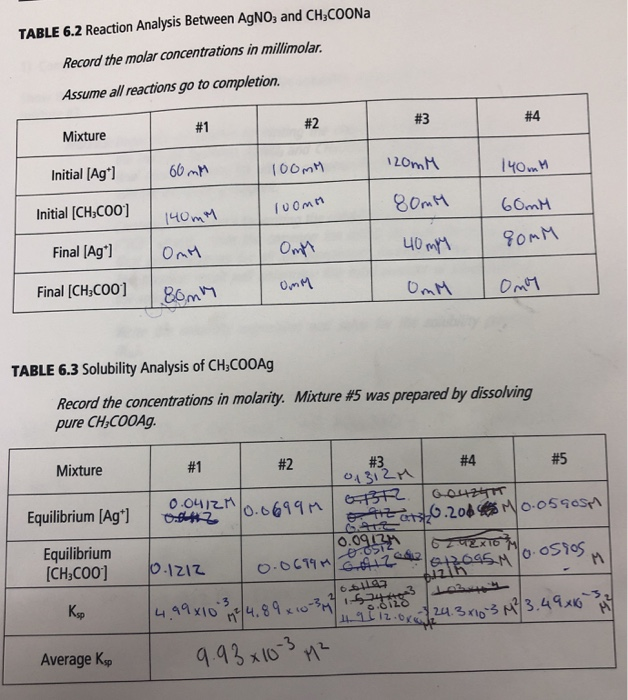 TABLE 6.2 Reaction Analysis Between AgNO₃ and CH₃COONa
Record the molar concentrations in millimolar.
Assume all reactions go to completion.
Mixture #1 #2 #3 #4
Initial [Ag⁺] 60mM 100mM 120mM 140mM
Initial [CH₃COO⁻] 140mM 100mM 80mM 60mM
Final [Ag⁺] 0mM 0mM 40mM 80mM
Final [CH₃COO⁻] 80mM 0mM 0mM 0mM
TABLE 6.3 Solubility Analysis of CH₃COOAg
Record the concentrations in molarity. Mixture #5 was prepared by dissolving
pure CH₃COOAg.
Mixture #1 #2 #3 #4 #5
0.1312M
Equilibrium [Ag⁺] 0.0412M 0.0699M 0.05905M
Equilibrium
[CH₃COO⁻] 0.1212 0.0699M 0.0912M 0.05905 M
Ksp 4.99x10⁻³ M² 4.89x10⁻³M² 24.3x10⁻³ M² 3.49x10⁻³ M²
Average Ksp 9.93x10⁻³ M²